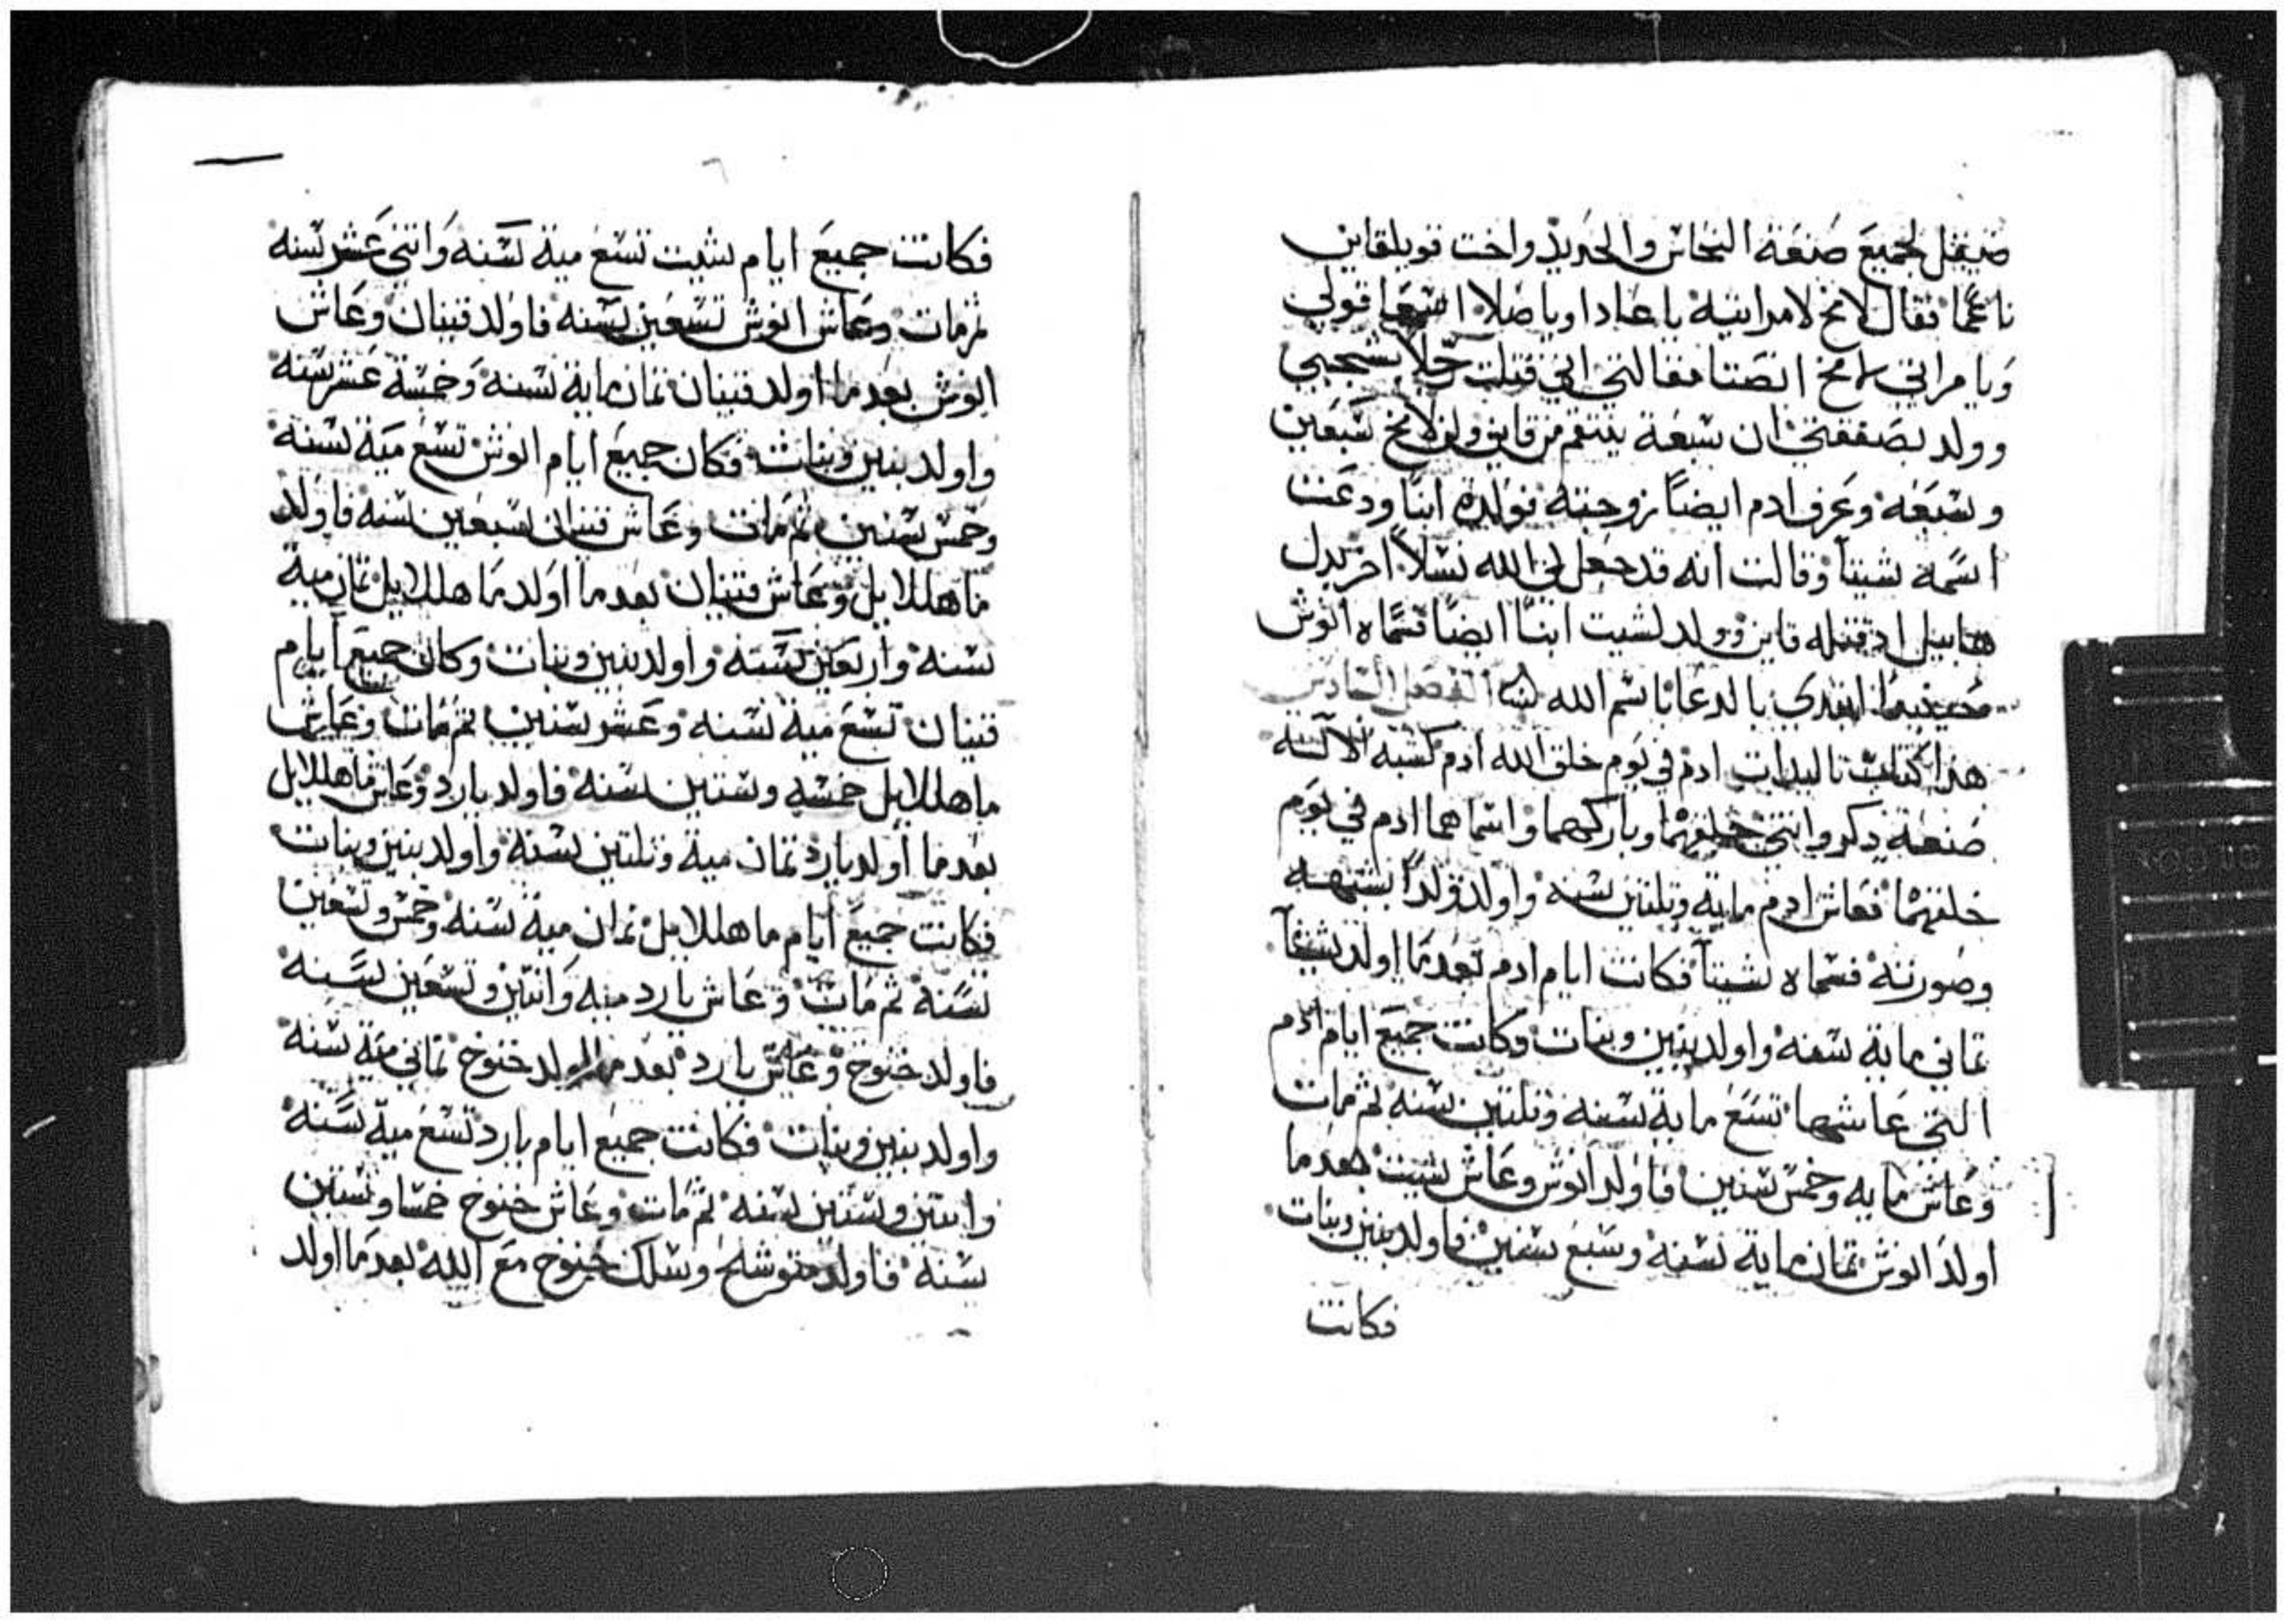 صيقل لجميع صنعة النحاس والحديد واخت توبلقاين
ناعما فقال لامخ لامراتيه ياعادا وياصلا اسمعا قولي
ويامراتي لامخ انصتا مقالتي اني قتلت رجلا بشجبي
وولد بصفقتي ان سبعة ينتقم من قاين ولن لامخ سبعين
وسبعه وعرف ادم ايضاً زوجته فولدة ابنًا ودعت
اسمه شيتا وقالت انه قد جعل لي الله نسلاً اخر بدل
هابيل اد قتله قاين وولد لشيت ابنًا ايضًا فسماه انوش
حينيد ابتدي بالدعا باسم الله الفصل السادس
هدا كتاب تاليدات ادم في يوم خلق الله ادم كشبه الالاه
صنعه دكر وانتي خلقهما وباركهما واسماهما ادم في يوم
خلقهما فعاش ادم مايه وتلتين سنه واولد ولداً بشبهه
وصورته فسماه شيتاً فكانت ايام ادم بعد ما اولد شيتاً
تماني ماية سنه واولد بنين وبنات وكانت جميع ايام ادم
التي عاشها تسع ماية سنه وتلتين سنه ثم مات
وعاش مايه وخمس سنين فاولد انوش وعاش شيت بعد ما
اولد انوش تمان ماية سنه وسبع سنين فاولد بنين وبنات
فكانت
فكانت جميع ايام شيت تسع مية سنه واتني عشر سنه
ثم مات وعاش انوش تسعين سنه فاولد قينان وعاش
انوش بعد ما اولد قينان تمان ماية سنه وخمسة عشر سنه
واولد بنين وبنات فكان جميع ايام انوش تسع مية سنه
وخمس سنين ثم مات وعاش قينان سبعين سنه فاولد
ماهللايل وعاش قينان بعد ما اولد ماهللايل تمان مية
سنه واربعين سنه واولد بنين وبنات وكان جميع ايام
قينان تسع مية سنه وعشر سنين ثم مات وعاش
ماهللايل خمسه وستين سنه فاولد يارد وعاش ماهللايل
بعد ما اولد يارد تمان مية وتلتين سنة واولد بنين وبنات
فكانت جميع ايام ماهللايل تمان مية سنه وخمس وتسعين
سنه ثم مات وعاش يارد ميه واتنين وتسعين سنه
فاولد خنوخ وعاش يارد بعد ما اولد خنوخ تماني مية سنه
واولد بنين وبنات فكانت جميع ايام يارد تسع مية سنه
واتنين وستين سنه ثم مات وعاش خنوخ خمسا وستين
سنة فاولد متوشلح وسلك خنوخ مع الله بعد ما اولد